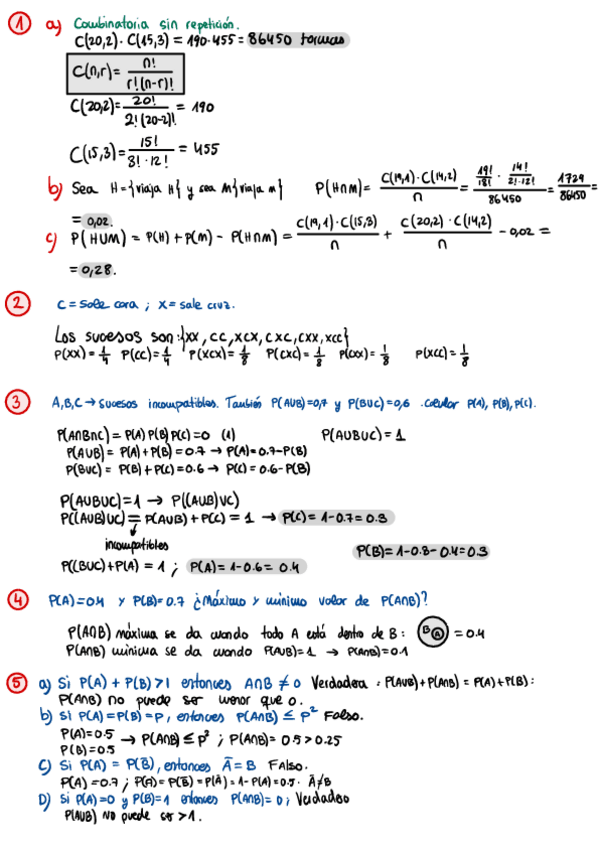 1 a) Combinatoria sin repetición.
C(20,2) · C(15,3) = 190·455 = 86450 formas
C(n,r) = n! / r!(n-r)!
C(20,2) = 20! / 2!(20-2)! = 190
C(15,3) = 15! / 3!·12! = 455
b) Sea H={viaja H} y sea M{viaja M} P(H∩M) = C(19,1)·C(14,2) / n = 19!/18! · 14!/2!·12! / 86450 = 1729 / 86450 =
= 0,02.
c) P(HUM) = P(H) + P(M) - P(H∩M) = C(19,1)·C(15,3) / n + C(20,2)·C(14,2) / n - 0,02 =
= 0,28.
2 C = Sale cara ; X = sale cruz.
Los sucesos son:{XX, CC, XCX, CXC, CXX, XCC}
P(XX) = 1/4 P(CC) = 1/4 P(XCX) = 1/8 P(CXC) = 1/8 P(CXX) = 1/8 P(XCC) = 1/8
3 A,B,C → Sucesos incompatibles. También P(AUB)=0,7 y P(BUC)=0,6. Calcular P(A), P(B), P(C).
P(A∩B∩C) = P(A) P(B) P(C) = 0 (1) P(AUBUC) = 1
P(AUB) = P(A) + P(B) = 0.7 → P(A) = 0.7-P(B)
P(BUC) = P(B) + P(C) = 0.6 → P(C) = 0.6-P(B)
P(AUBUC) = 1 → P((AUB)UC)
P((AUB)UC) = P(AUB) + P(C) = 1 → P(C) = 1-0.7 = 0.3
incompatibles
P(B) = 1-0.3-0.4 = 0.3
P((BUC)+P(A) = 1 ; P(A) = 1-0.6 = 0.4
4 P(A)=0.4 y P(B)=0.7 ¿Máximo y mínimo valor de P(A∩B)?
P(A∩B) máxima se da cuando todo A está dentro de B : B A = 0.4
P(A∩B) mínima se da cuando P(AUB)=1 → P(A∩B)=0.1
5 a) Si P(A) + P(B) > 1 entonces A∩B ≠ 0 Verdadera : P(AUB)+P(A∩B) = P(A)+P(B) :
P(A∩B) no puede ser menor que 0.
b) Si P(A)=P(B)=P, entonces P(A∩B) ≤ P² Falso.
P(A)=0.5
P(B)=0.5 → P(A∩B) ≤ P² ; P(A∩B) = 0.5 > 0.25
C) Si P(A) = P(B̄), entonces Ā = B Falso.
P(A) = 0.7 ; P(A) = P(B̄) = P(Ā) = 1-P(A) = 0.5. Ā≠B
D) Si P(A)=0 y P(B)=1 entonces P(A∩B) = 0 ; Verdadero
P(AUB) NO puede ser >1.